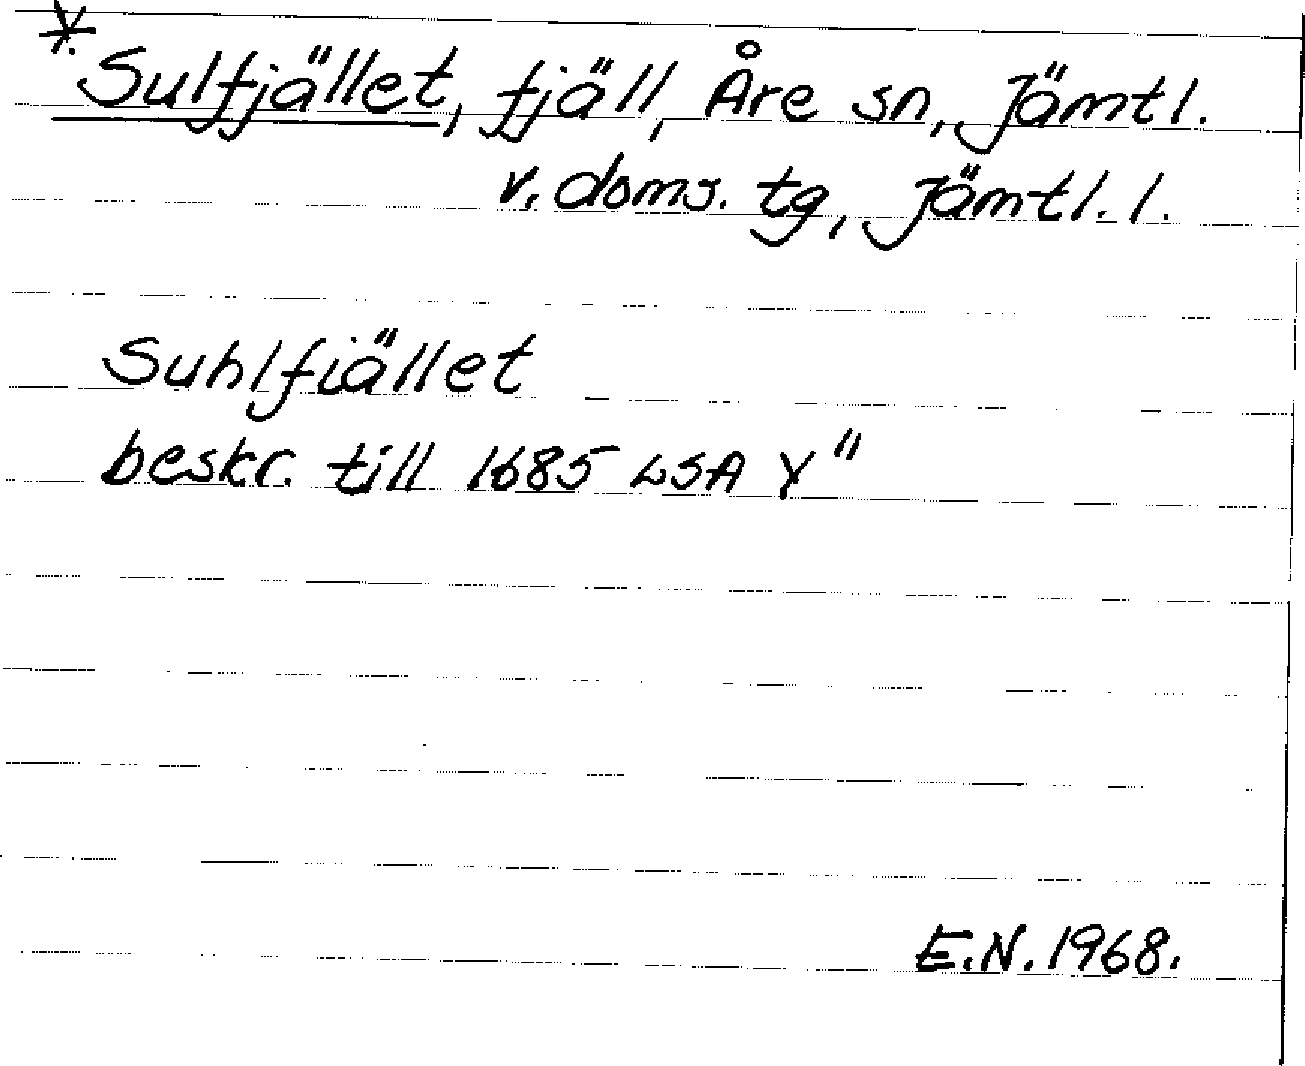 *. Sulfjället, fjäll, Åre sn, Jämtl.
v. doms. tg, Jämtl. l.
Suhlfiället
beskr. till 1685 LSA Y"
E.N. 1968.